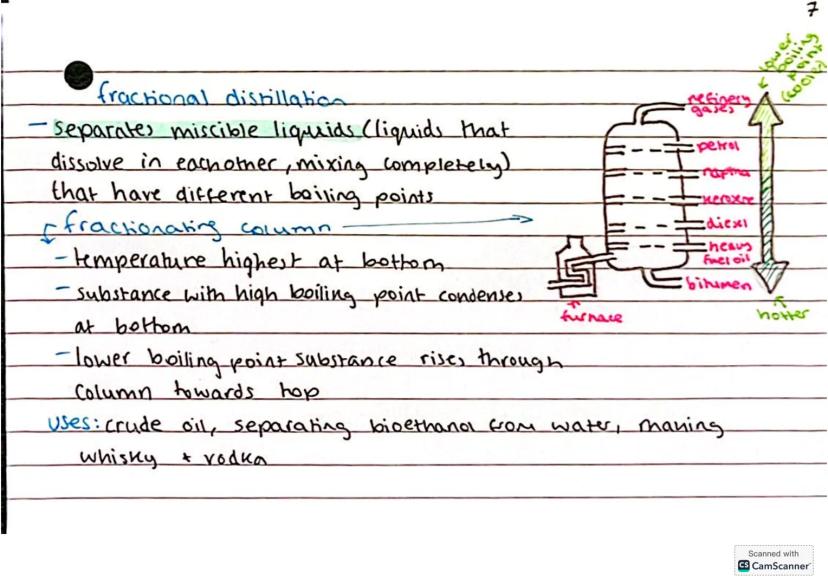 7
fractional distillation
- separates miscible liquids (liquids that
dissolve in eachother, mixing completely)
that have different boiling points
fractionating column
- temperature highest at bottom
- substance with high boiling point condenses
at bottom
- lower boiling point substance rises through
column towards top
uses: crude oil, separating bioethanol from water, making
whisky + vodka
lower
boiling
point
(cooler)
refinery
gases
petrol
naptha
kerosene
diesel
heavy
fuel oil
bitumen
furnace
hotter
Scanned with
CS CamScanner